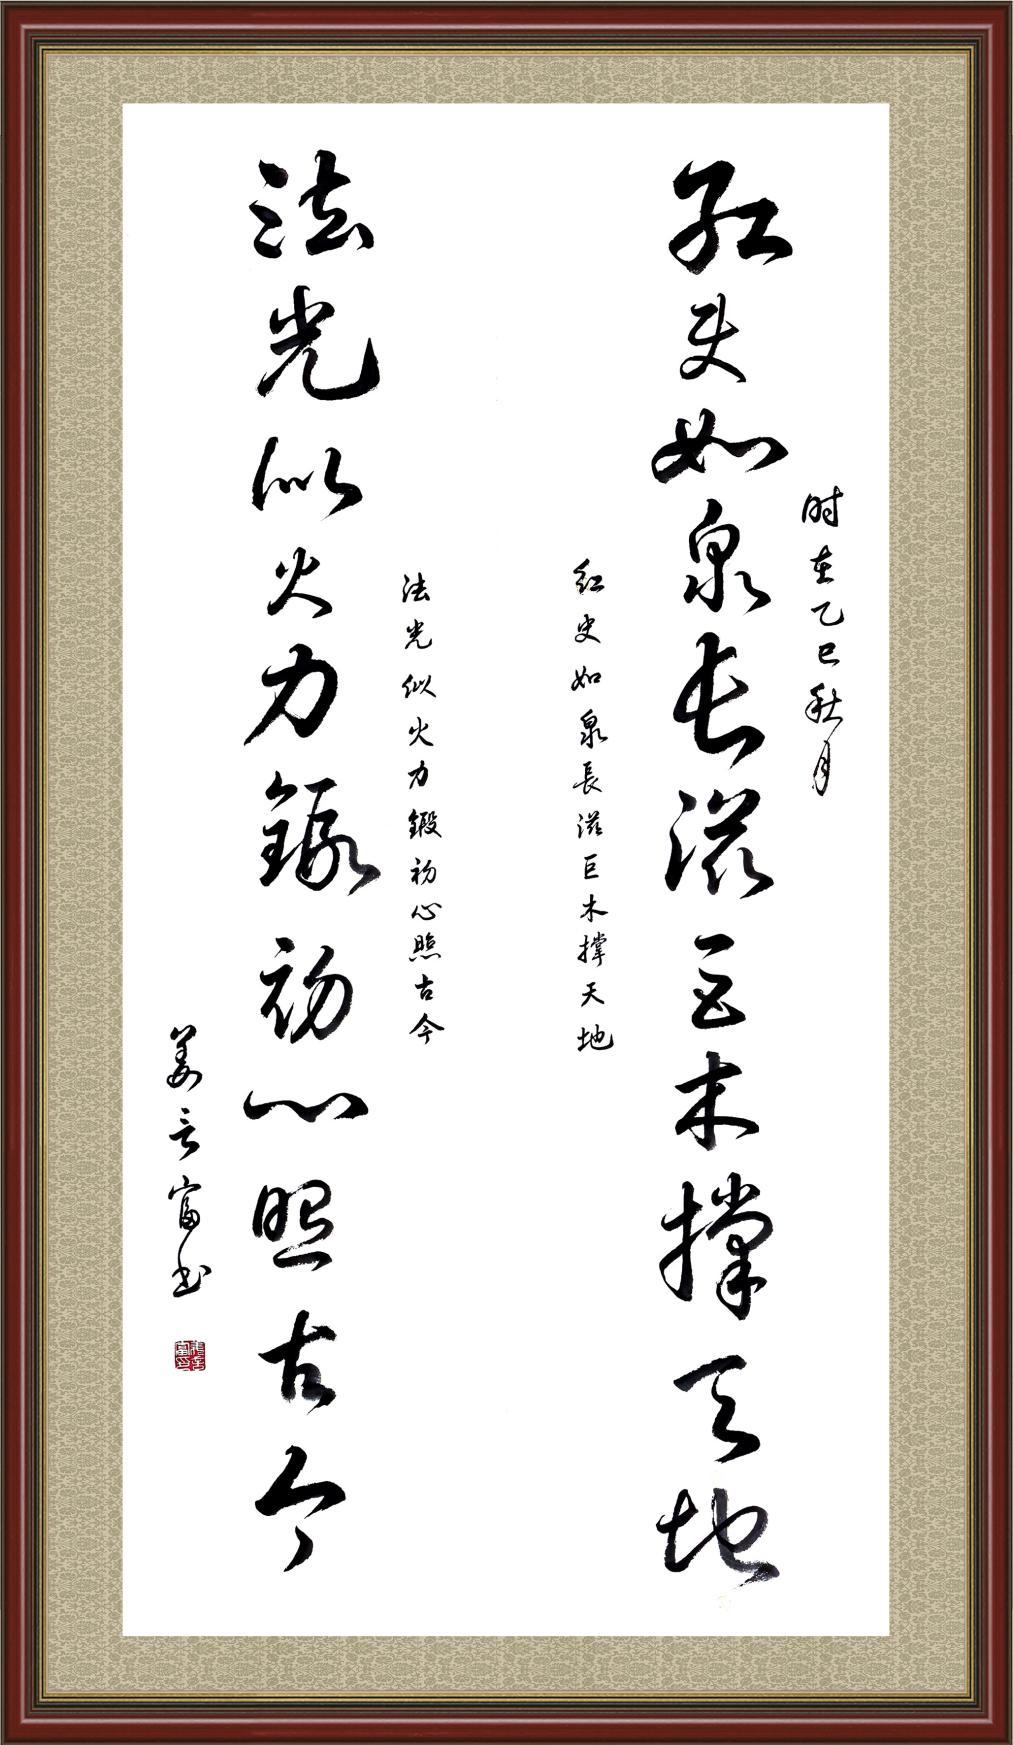 时在乙巳秋月
红史如泉长滋巨木撑天地
红史如泉長滋巨木撑天地
法光似火力鍛初心照古今
法光似火力鍛初心照古今
姜言富书